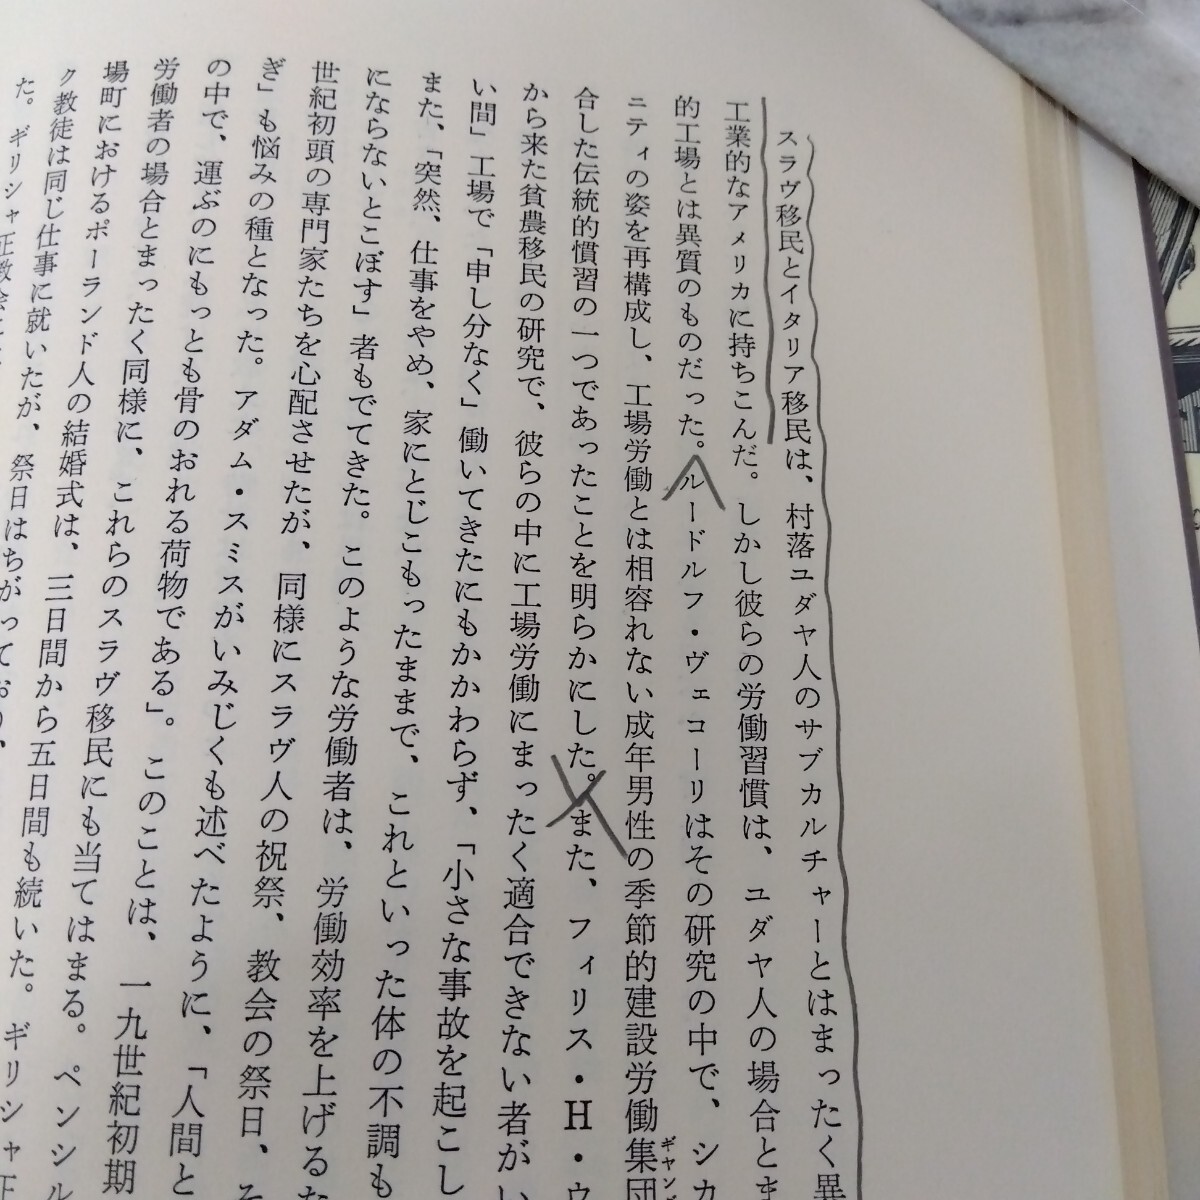 スラヴ移民とイタリア移民は、村落ユダヤ人のサブカルチャーとはまったく異
工業的なアメリカに持ちこんだ。しかし彼らの労働習慣は、ユダヤ人の場合とま
的工場とは異質のものだった。ルードルフ・ヴェコーリはその研究の中で、シカ
ニティの姿を再構成し、工場労働とは相容れない成年男性の季節的建設労働集団
合した伝統的慣習の一つであったことを明らかにした。また、フィリス・H・ウ
から来た貧農移民の研究で、彼らの中に工場労働にまったく適合できない者がい
い間」工場で「申し分なく」働いてきたにもかかわらず、「小さな事故を起こし
また、「突然、仕事をやめ、家にとじこもったままで、これといった体の不調も
にならないとこぼす」者もでてきた。このような労働者は、労働効率を上げるな
世紀初頭の専門家たちを心配させたが、同様にスラヴ人の祝祭、教会の祭日、そ
ぎ」も悩みの種となった。アダム・スミスがいみじくも述べたように、「人間と
の中で、運ぶのにもっとも骨のおれる荷物である」。このことは、一九世紀初期
労働者の場合とまったく同様に、これらのスラヴ移民にも当てはまる。ペンシル
場町におけるポーランド人の結婚式は、三日間から五日間も続いた。ギリシャ正
ク教徒は同じ仕事に就いたが、祭日はちがっており、
た。ギリシャ正教会